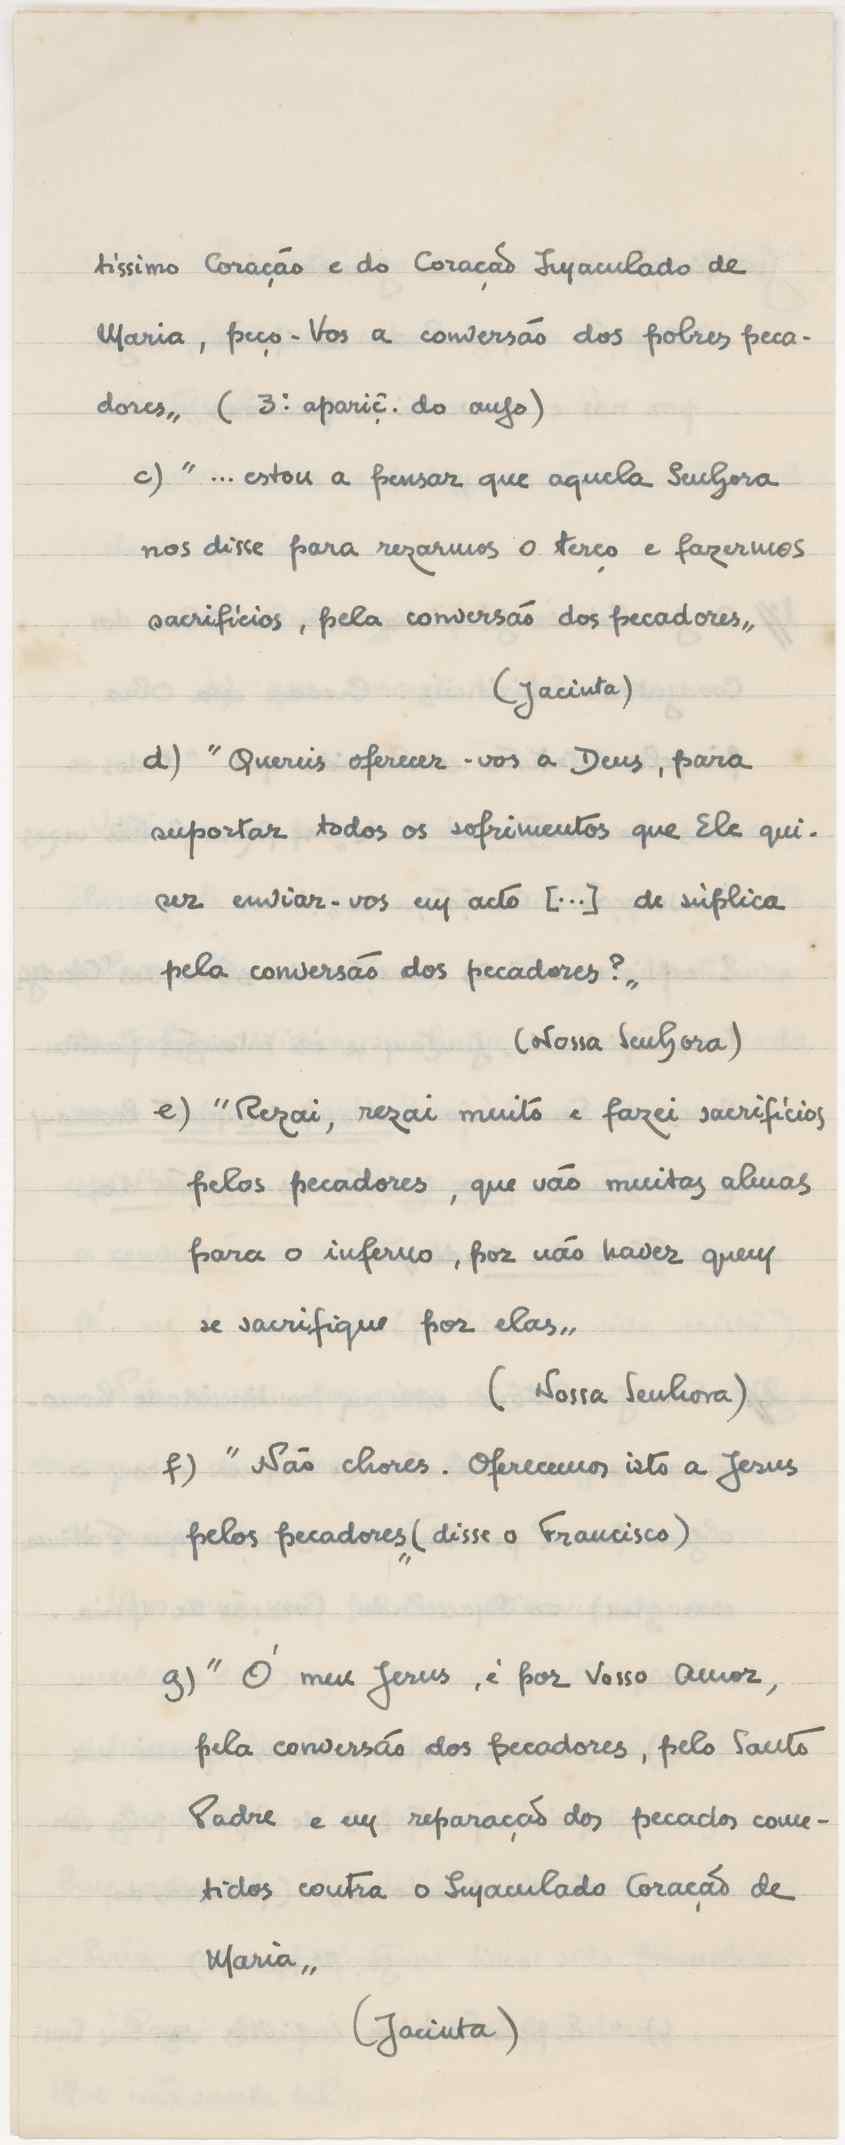 tíssimo Coração e do Coração Imaculado de
Maria, peço-Vos a conversão dos pobres peca-
dores„ ( 3ª: apariç̃. do anjo)
c) "... estou a pensar que aquela Senhora
nos disse para rezarmos o terço e fazermos
sacrifícios, pela conversão dos pecadores„
(Jacinta)
d) "Quereis oferecer-vos a Deus, para
suportar todos os sofrimentos que Ele qui-
ser enviar-vos em acto [...] de súplica
pela conversão dos pecadores?„
(Nossa Senhora)
e) "Rezai, rezai muito e fazei sacrifícios
pelos pecadores, que vão muitas almas
para o inferno, por não haver quem
se sacrifique por elas„
( Nossa Senhora)
f) "Não chores. Oferecemos isto a Jesus
pelos pecadores„ (disse o Francisco)
g) "Ó meu Jesus, é por Vosso Amor,
pela conversão dos pecadores, pelo Santo
Padre e em reparação dos pecados come-
tidos contra o Imaculado Coração de
Maria„
(Jacinta)